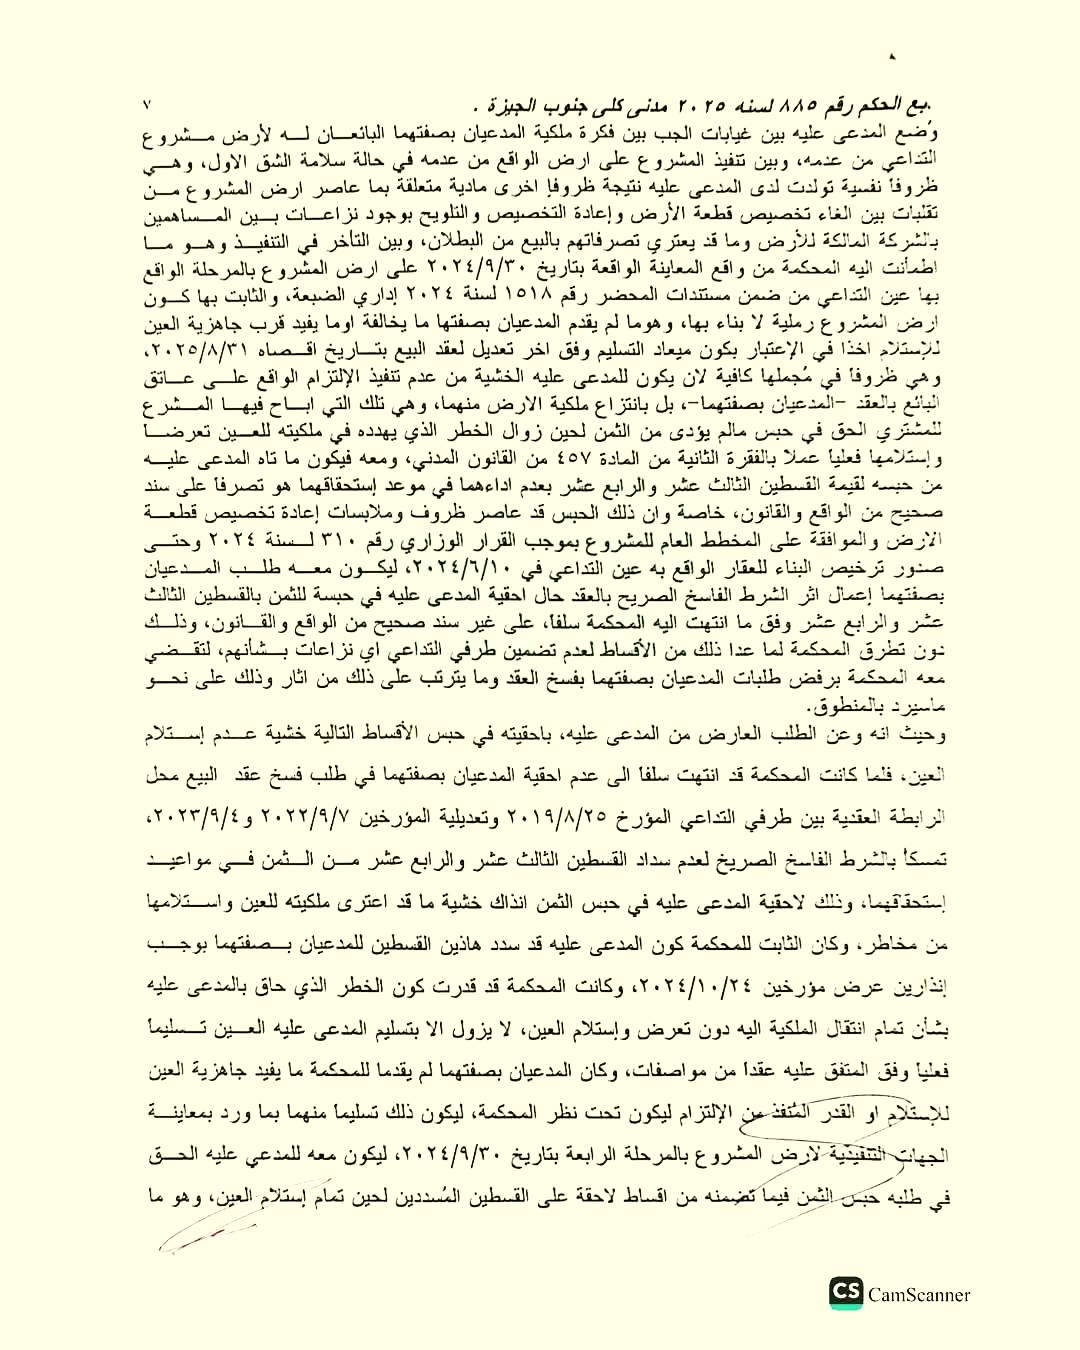 ٨
.بع الحكم رقم ٨٨٥ لسنه ٢٠٢٥ مدنى كلى جنوب الجيزة .
٧
وُضع المدعى عليه بين غيابات الجب بين فكرة ملكية المدعيان بصفتهما البائعان له لأرض مشروع
التداعي من عدمه، وبين تنفيذ المشروع على ارض الواقع من عدمه في حالة سلامة الشق الاول، وهي
ظروفاً نفسية تولدت لدى المدعى عليه نتيجة ظروفاً اخرى مادية متعلقة بما عاصر ارض المشروع من
تقلبات بين الغاء تخصيص قطعة الأرض وإعادة التخصيص والتلويح بوجود نزاعات بين المساهمين
بالشركة المالكة للأرض وما قد يعتري تصرفاتهم بالبيع من البطلان، وبين التأخر في التنفيذ وهو ما
اطمأنت اليه المحكمة من واقع المعاينة الواقعة بتاريخ ٢٠٢٤/٩/٣٠ على ارض المشروع بالمرحلة الواقع
بها عين التداعي من ضمن مستندات المحضر رقم ١٥١٨ لسنة ٢٠٢٤ إداري الضبعة، والثابت بها كون
ارض المشروع رملية لا بناء بها، وهوما لم يقدم المدعيان بصفتها ما يخالفة اوما يفيد قرب جاهزية العين
للإستلام اخذا في الإعتبار بكون ميعاد التسليم وفق اخر تعديل لعقد البيع بتاريخ اقصاه ٢٠٢٥/٨/٣١،
وهي ظروفاً في مُجملها كافية لان يكون للمدعى عليه الخشية من عدم تنفيذ الإلتزام الواقع على عاتق
البائع بالعقد –المدعيان بصفتهما–، بل بانتزاع ملكية الارض منهما، وهي تلك التي اباح فيها المشرع
للمشتري الحق في حبس مالم يؤدى من الثمن لحين زوال الخطر الذي يهدده في ملكيته للعين تعرضا
وإستلامها فعلياً عملاً بالفقرة الثانية من المادة ٤٥٧ من القانون المدني، ومعه فيكون ما تاه المدعى عليه
من حبسه لقيمة القسطين الثالث عشر والرابع عشر بعدم اداءهما في موعد إستحقاقهما هو تصرفاً على سند
صحيح من الواقع والقانون، خاصة وان ذلك الحبس قد عاصر ظروف وملابسات إعادة تخصيص قطعة
الارض والموافقة على المخطط العام للمشروع بموجب القرار الوزاري رقم ٣١٠ لسنة ٢٠٢٤ وحتى
صدور ترخيص البناء للعقار الواقع به عين التداعي في ٢٠٢٤/٦/١٠، ليكون معه طلب المدعيان
بصفتهما إعمال اثر الشرط الفاسخ الصريح بالعقد حال احقية المدعى عليه في حبسة للثمن بالقسطين الثالث
عشر والرابع عشر وفق ما انتهت اليه المحكمة سلفاً، على غير سند صحيح من الواقع والقانون، وذلك
دون تطرق المحكمة لما عدا ذلك من الأقساط لعدم تضمين طرفي التداعي اي نزاعات بشأنهم، لتقضي
معه المحكمة برفض طلبات المدعيان بصفتهما بفسخ العقد وما يترتب على ذلك من اثار وذلك على نحو
ماسيرد بالمنطوق.
وحيث انه وعن الطلب العارض من المدعى عليه، باحقيته في حبس الأقساط التالية خشية عدم إستلام
العين، فلما كانت المحكمة قد انتهت سلفاً الى عدم احقية المدعيان بصفتهما في طلب فسخ عقد البيع محل
الرابطة العقدية بين طرفي التداعي المؤرخ ٢٠١٩/٨/٢٥ وتعديلية المؤرخين ٢٠٢٢/٩/٧ و٢٠٢٣/٩/٤،
تمسكاً بالشرط الفاسخ الصريح لعدم سداد القسطين الثالث عشر والرابع عشر من الثمن في مواعيد
إستحقاقهما، وذلك لاحقية المدعى عليه في حبس الثمن انذاك خشية ما قد اعترى ملكيته للعين واستلامها
من مخاطر، وكان الثابت للمحكمة كون المدعى عليه قد سدد هاذين القسطين للمدعيان بصفتهما بوجب
إنذارين عرض مؤرخين ٢٠٢٤/١٠/٢٤، وكانت المحكمة قد قدرت كون الخطر الذي حاق بالمدعى عليه
بشأن تمام انتقال الملكية اليه دون تعرض وإستلام العين، لا يزول الا بتسليم المدعى عليه العين تسليماً
فعلياً وفق المتفق عليه عقداً من مواصفات، وكان المدعيان بصفتهما لم يقدما للمحكمة ما يفيد جاهزية العين
للإستلام او القدر المُنفذ من الإلتزام ليكون تحت نظر المحكمة، ليكون ذلك تسليما منهما بما ورد بمعاينة
الجهات التنفيذية لارض المشروع بالمرحلة الرابعة بتاريخ ٢٠٢٤/٩/٣٠، ليكون معه للمدعي عليه الحق
في طلبه حبس الثمن فيما تضمنه من اقساط لاحقة على القسطين المُسددين لحين تمام إستلام العين، وهو ما
CS CamScanner